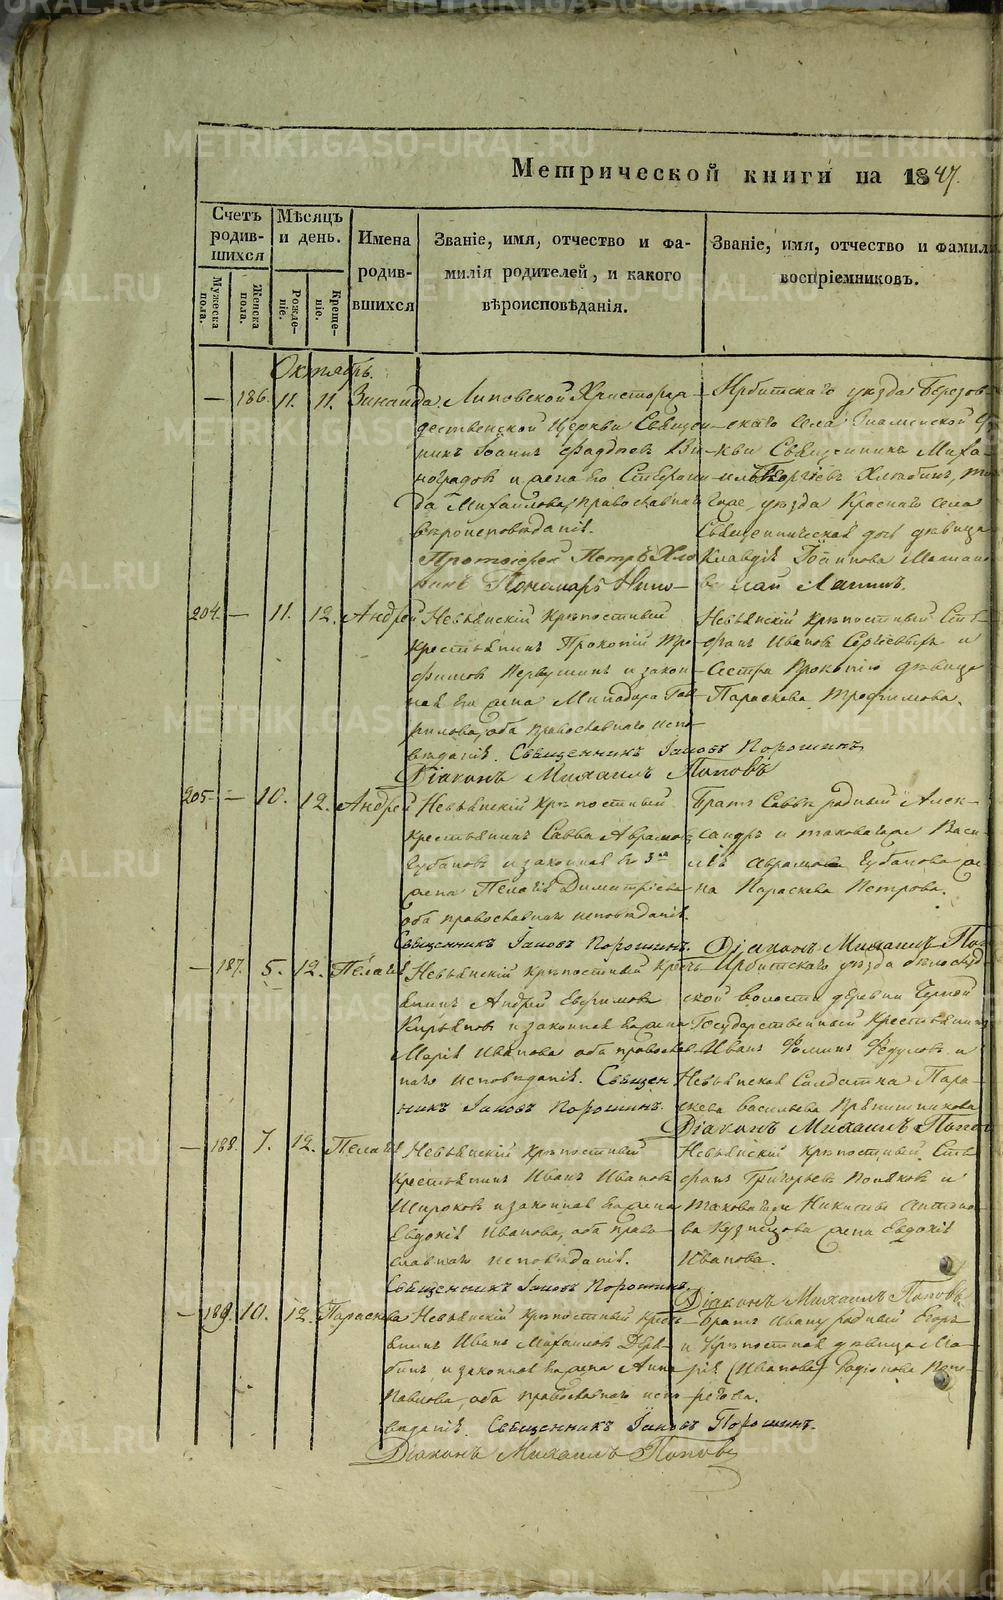 Метрической книги на 1847.
Счетъ родив-шихся
Мѣсяцъ и день.
Имена родив-вшихся
Званіе, имя, отчество и фа-
милія родителей, и какого
вѣроисповѣданія.
Званіе, имя, отчество и фамилі
воспріемниковъ.
Мужеска пола.
Женска пола.
Рожде-ніе.
Креще-ніе.
Октябрь.
— 186. 11. 11. Зинаида
Липовской Христорож-
дественской Церкви Священ-
никъ Іоаннъ Фаддѣевъ Ви-
ноградовъ и жена его
да Михайлова, православнаго
вѣроисповѣданія.
Протоіерей Петръ
Пономарь
Ирбитскаго уѣзда Березов-
скаго села Знаменской Ц
ркви Священникъ Миха-
илъ Георгіевъ
гоже уѣзда Краснаго села
Священническая дочь дѣвица
Клавдія Іоаннова
204. — 11. 12. Андрей
Невьянскій крѣпостный
крестьянинъ Прокопій Тро-
фимовъ Первушинъ и закон-
ная его жена Минодора Гав-
рилова, оба православнаго испо-
вѣданія. Священникъ Іаковъ Порошинъ
Діаконъ Михаилъ Поповъ
Невьянскій крѣпостный Сте-
фанъ Ивановъ Сергѣевыхъ и
Сестра Прокопію дѣвица
Параскева Трофимова.
205. — 10. 12. Андрей
Невьянскій крѣпостный
крестьянинъ Савва Аврамовъ
Губановъ и законная его 3ья
жена Пелагія Димитріева
оба православнаго исповѣданія.
Священникъ Іаковъ Порошинъ.
Братъ Саввѣ родный Алек-
сандръ и таковагоже Васи-
лія Аврамова Губанова же-
на Параскева Петрова.
Діаконъ Михаилъ Поп
— 187. 5. 12. Пелагія
Невьянскій крѣпостный крест-
ьянинъ Андрей Евфимовъ
Кирьяновъ и законная его жена
Марія Иванова оба православ-
наго исповѣданія. Священ
никъ Іаковъ Порошинъ.
Ирбитскаго уѣзда Бѣлослуд-
ской волости деревни Черной
Государственный крестьянинъ
Иванъ Фоминъ Ѳедуловъ и
Невьянская Солдатка Пара-
скева Васильева
Діаконъ Михаилъ Попов
— 188. 7. 12. Пелагія
Невьянскій крѣпостный
крестьянинъ Иванъ Ивановъ
Широковъ и законная его жена
Евдокія Иванова, оба право-
славнаго исповѣданія.
Священникъ Іаковъ Порошинъ.
Невьянскій крѣпостный Сте-
фанъ Григорьевъ Поляковъ и
таковагоже Никиты Антоно-
ва Кузнецова жена Евдокія
Иванова.
Діаконъ Михаилъ Поповъ
— 189. 10. 12. Параскева
Невьянскій крѣпостный крест
ьянинъ Иванъ Михайловъ Деря-
бинъ и законная его жена Анна
Павлова, оба православнаго испо-
вѣданія. Священникъ Іаковъ Порошинъ.
Діаконъ Михаилъ Поповъ
Братъ Ивану родный Егоръ
и Крѣпостная дѣвица Ма-
рія (Иванова) Родіонова